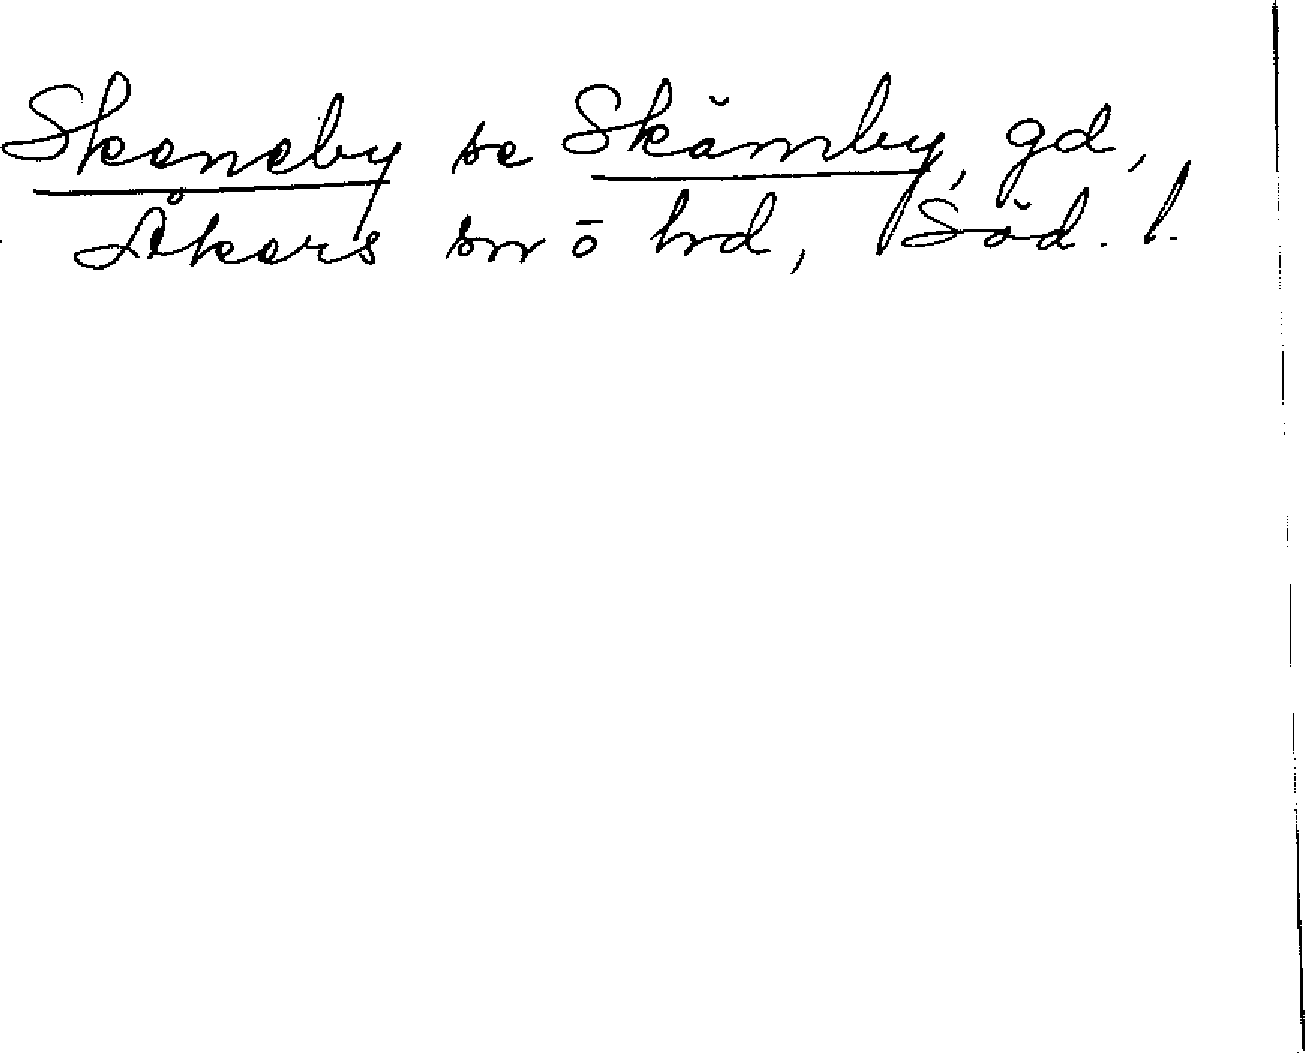 Skeneby se Skämby, gd,
Åkers sn o hd, Söd. l.